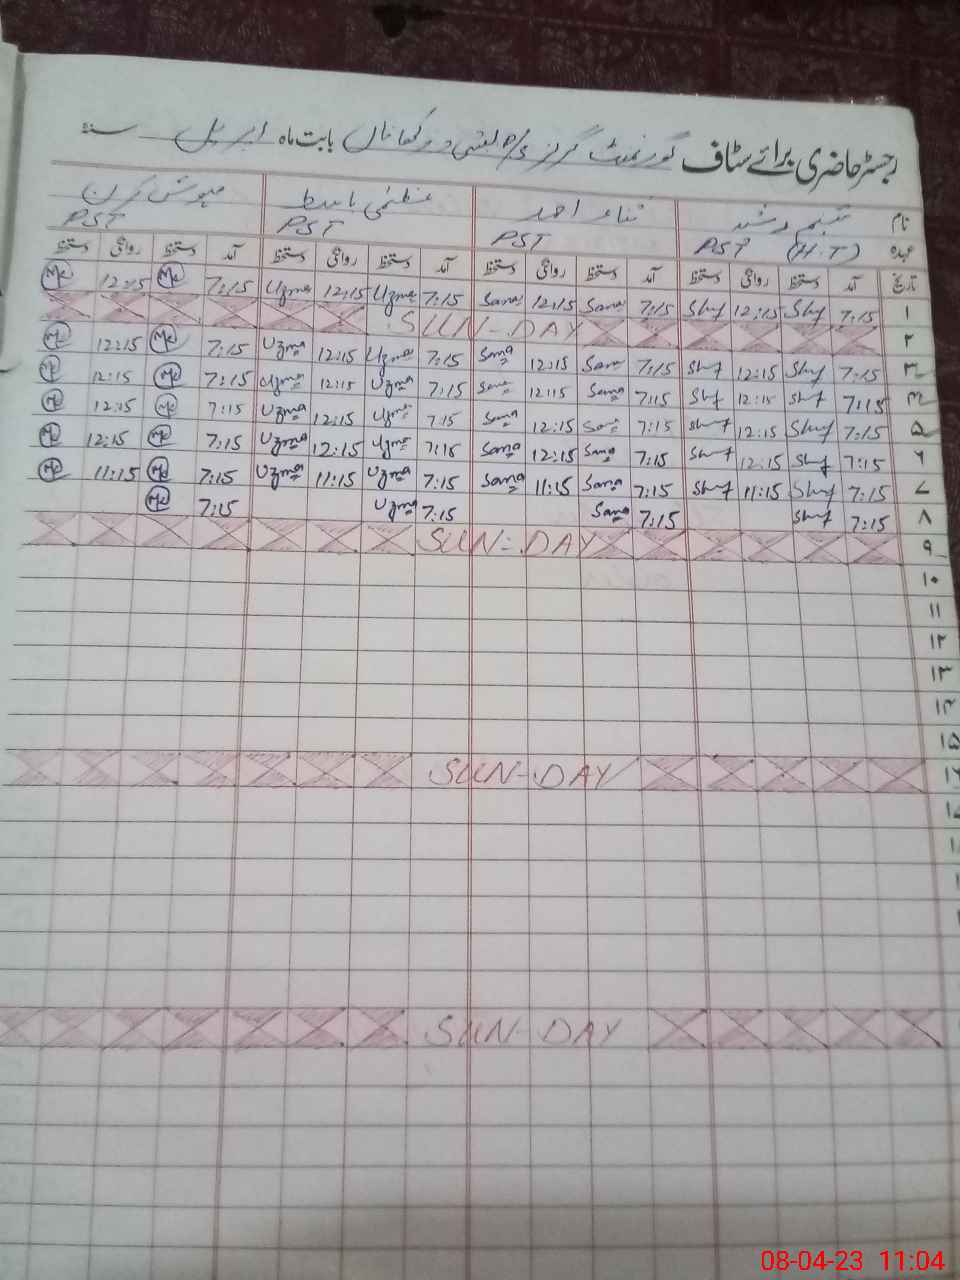 رجسٹر حاضری برائے سٹاف گورنمنٹ گرلز بابت ماہ اپریل سنہ
نام تبسم رشید ثناء احمد عظمیٰ باسط مہوش کرن
عہدہ PST (H.T) PST PST PST
تاریخ آمد دستخط روانگی دستخط آمد دستخط روانگی دستخط آمد دستخط روانگی دستخط آمد دستخط روانگی دستخط
۱ 7:15 12:15 7:15 Sana 12:15 Sana 7:15 Uzma 12:15 Uzma 7:15 Mk 12:15 Mk
۲ SUN-DAY
۳ 7:15 12:15 7:15 Sana 12:15 Sana 7:15 Uzma 12:15 Uzma 7:15 Mk 12:15 Mk
۴ 7:15 12:15 7:15 Sana 12:15 Sana 7:15 Uzma 12:15 Uzma 7:15 Mk 12:15 Mk
۵ 7:15 12:15 7:15 Sana 12:15 Sana 7:15 Uzma 12:15 Uzma 7:15 Mk 12:15 Mk
۶ 7:15 12:15 7:15 Sana 12:15 Sana 7:15 Uzma 12:15 Uzma 7:15 Mk 12:15 Mk
۷ 7:15 11:15 7:15 Sana 11:15 Sana 7:15 Uzma 11:15 Uzma 7:15 Mk 11:15 Mk
۸ 7:15 7:15 Sana 7:15 Uzma 7:15 Mk
۹ SUN-DAY
۱۰
۱۱
۱۲
۱۳
۱۴
۱۵
۱۶ SUN-DAY
SUN-DAY
08-04-23 11:04